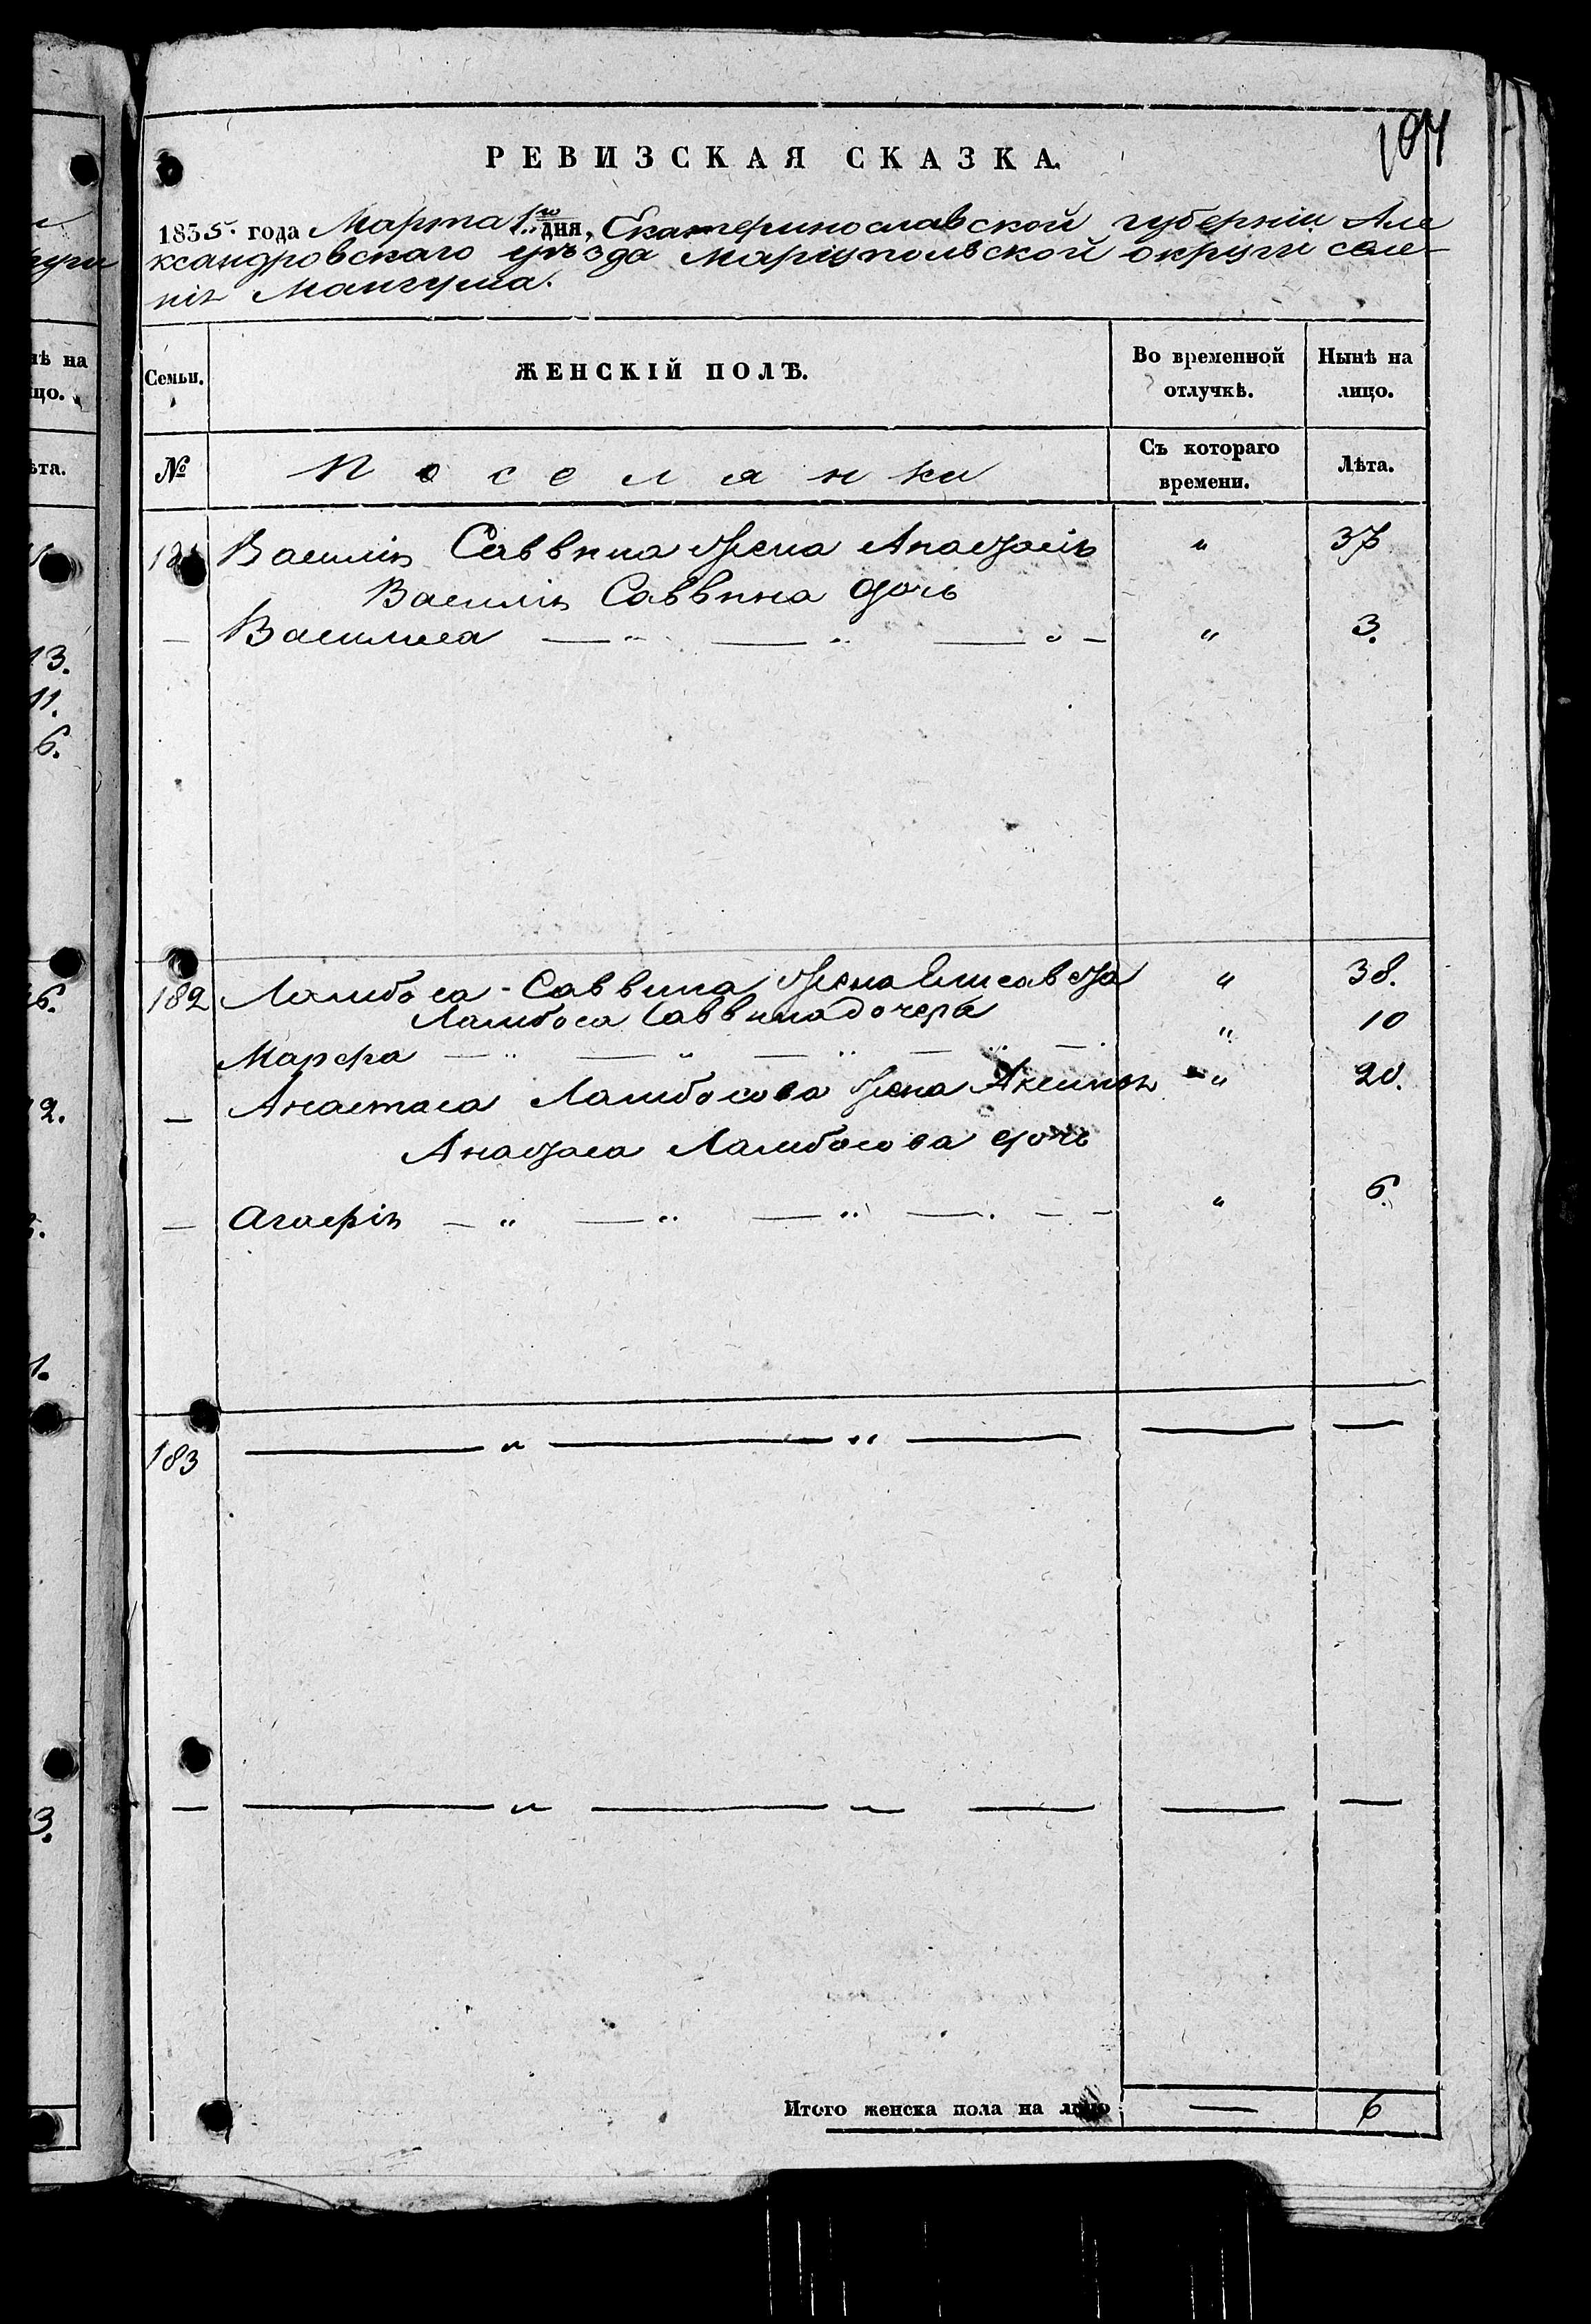 104
РЕВИЗСКАЯ СКАЗКА.
1835. года Марта 1го дня, Екатеринославской губерніи Але
ксандровскаго уѣзда Маріупольской округи селе-
нія Мангуша.
Семьи. ЖЕНСКІЙ ПОЛЪ. Во временной отлучкѣ. Нынѣ на лицо.
№ Поселянки Съ котораго времени. Лѣта.
181 Василія Саввина жена Анастасія " 37
Василія Саввина дочь
— Василиса — " — " — " — " 3.
182 Ламбоса - Саввина жена Елисавета " 38.
Ламбоса Саввина дочерь
Марфа — " — " — " — " — " 10
— Анастаса Ламбосова жена Аксинія " 20.
Анастаса Ламбосова дочь
— Агафія — " — " — " — . — — " 6.
183 — " — " — — —
— — " — " — — —
Итого женска пола на лицо — 6
нѣ на
цо.
ѣта.
13.
11.
6.
6.
2.
1.
3.